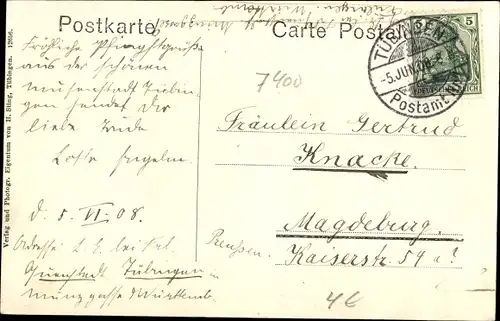 Postkarte
Carte Postale
Fröhliche Pfingstgrüße
aus der schönen
Musenstadt Tübin-
gen sendet dir
liebe Trude
Lotte
d. 5. VI. 08.
Adresse L. E. bei Frl.
Quenstedt Tübingen
Münzgasse Württemb.
Verlag und Photogr. Eigentum von H. Sting, Tübingen. 12656.
TÜBINGEN
-5.JUN.08.
Postamt
5 5
DEUTSCHES REICH
7400
Fräulein Gertrud
Knacke.
Magdeburg.
Preußen.
Kaiserstr. 54 a?
4€